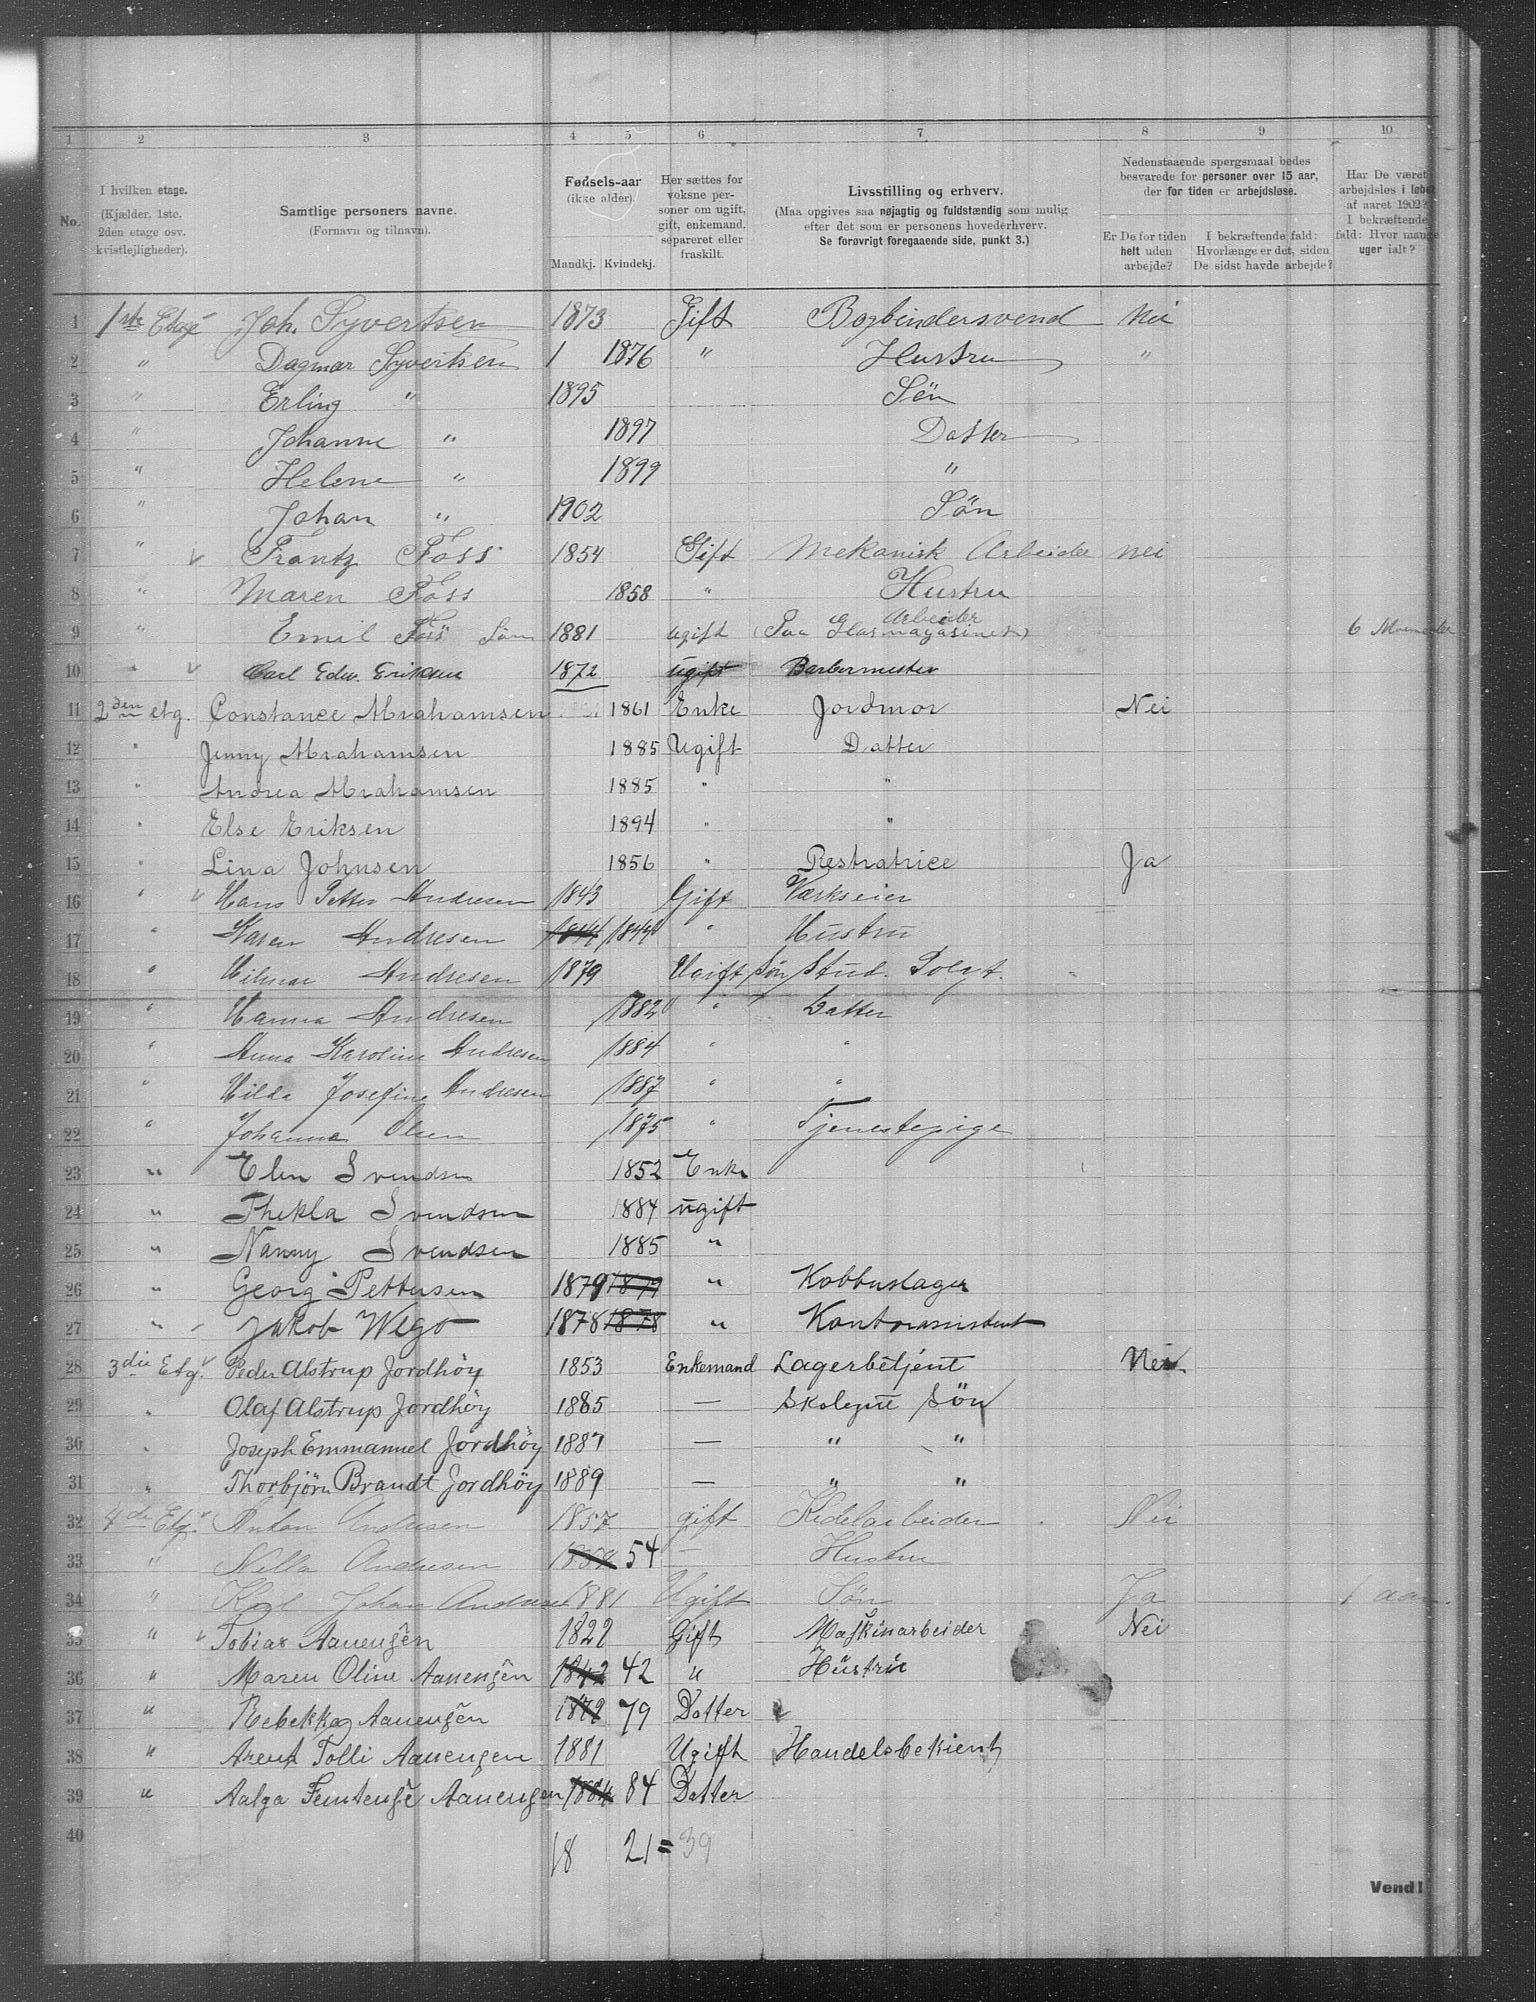 1 2 3 4 5 6 7 8 9 10
No.
I hvilken etage. (Kjælder, 1ste. 2den etage osv. kvistlejligheder).
Samtlige personers navne. (Fornavn og tilnavn).
Fødsels-aar (ikke alder). Mandkj. Kvindekj.
Her sættes for voksne personer om ugift, gift, enkemand, separeret eller fraskilt.
Livsstilling og erhverv. (Maa opgives saa nøjagtig og fuldstændig som mulig efter det som er personens hovederhverv. Se forøvrigt foregaaende side, punkt 3.)
Nedenstaaende spørgsmaal bedes besvarede for personer over 15 aar, der for tiden er arbejdsløse.
Er De for tiden helt uden arbejde?
I bekræftende fald: Hvorlænge er det, siden De sidst havde arbejde?
Har De været arbejdsløs i løbet af aaret 1902? I bekræftende fald: Hvor mange uger ialt?
1 1ste Etage Joh. Syvertsen 1873 Gift Bogbindersvend Nei
2 " Dagmar Syvertsen 1 1876 " Hustru "
3 " Erling " 1895 Søn
4 " Johanne " 1897 Datter
5 " Helene " 1899 "
6 " Johan " 1902 Søn
7 " Frantz Foss 1854 Gift Mekanisk Arbeider nei
8 " Maren Foss 1858 " Hustru
9 " Emil Foss Søn 1881 ugift (Paa Glasmagasinet) Arbeider 6 Maaneder
10 " Carl Edw. Eriksen 1872 ugift Barbermester
11 2den etg. Constance Abrahamsen 1861 Enke Jordmor Nei
12 " Jenny Abrahamsen 1885 Ugift Datter
13 " Andrea Abrahamsen 1885 " "
14 " Else Eriksen 1894 " "
15 " Lina Johnsen 1856 " Restratrice Ja
16 " Hans Petter Andresen 1843 Gift Værkseier
17 " Karen Andresen 1844 1844 " Hustru
18 " Hilmar Andresen 1879 Ugift Søn Stud. Polyt.
19 " Hanna Andresen 1882 " Datter
20 " Anna Karoline Andresen 1884 " "
21 " Hilda Josefine Andresen 1887 " "
22 " Johanna Olsen 1875 " Tjenestepige
23 " Elen Svendsen 1852 Enke
24 " Thekla Svendsen 1884 ugift
25 " Nanny Svendsen 1885 "
26 " Georg Pettersen 1879 1879 " Kobberslager
27 " Jakob Wego 1878 1878 " Kontorassistent
28 3die Etg. Peder Alstrup Jordhöy 1853 Enkemand Lagerbetjent Nei
29 " Olaf Alstrup Jordhöy 1885 — Skolegut Sön
30 " Joseph Emmanuel Jordhöy 1887 — " "
31 " Thorbjörn Brandt Jordhöy 1889 — " "
32 4de Etg. Anton Andresen 1857 gift Kedelarbeider Nei
33 " Nilla Andresen 54 — Hustru
34 " Karl Johan Andresen 1881 Ugift Søn Ja 1 aar.
35 " Tobias Aanensen 1822 Gift Maskinarbeider Nei
36 " Maren Oline Aanensen 1842 42 " Hustru
37 " Rebekka Aanensen 1879 79 Datter
38 " Arent Tolli Aanensen 1881 Ugift Handelsbetient
39 " Aanensen 1884 84 Datter
40 18 21 = 39
Vend!